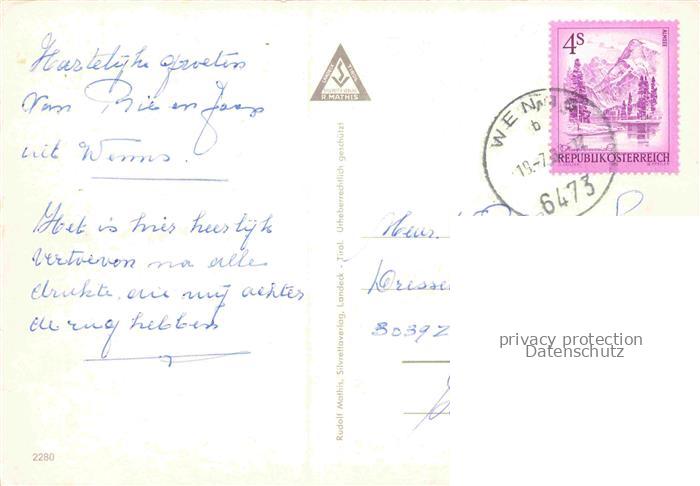 Hartelyke groeten
van Rie en Jaap
uit Wenns.
Het is hier heerlyk
vertoeven na alle
drukte, die wy achter
de rug hebben
2280
R. MATHIS
Rudolf Mathis, Silvrettaverlag, Landeck - Tirol. Urheberrechtlich geschützt
4S
ALMSEE
REPUBLIK ÖSTERREICH
WENNS
b
6473
8039Z
privacy protection
Datenschutz